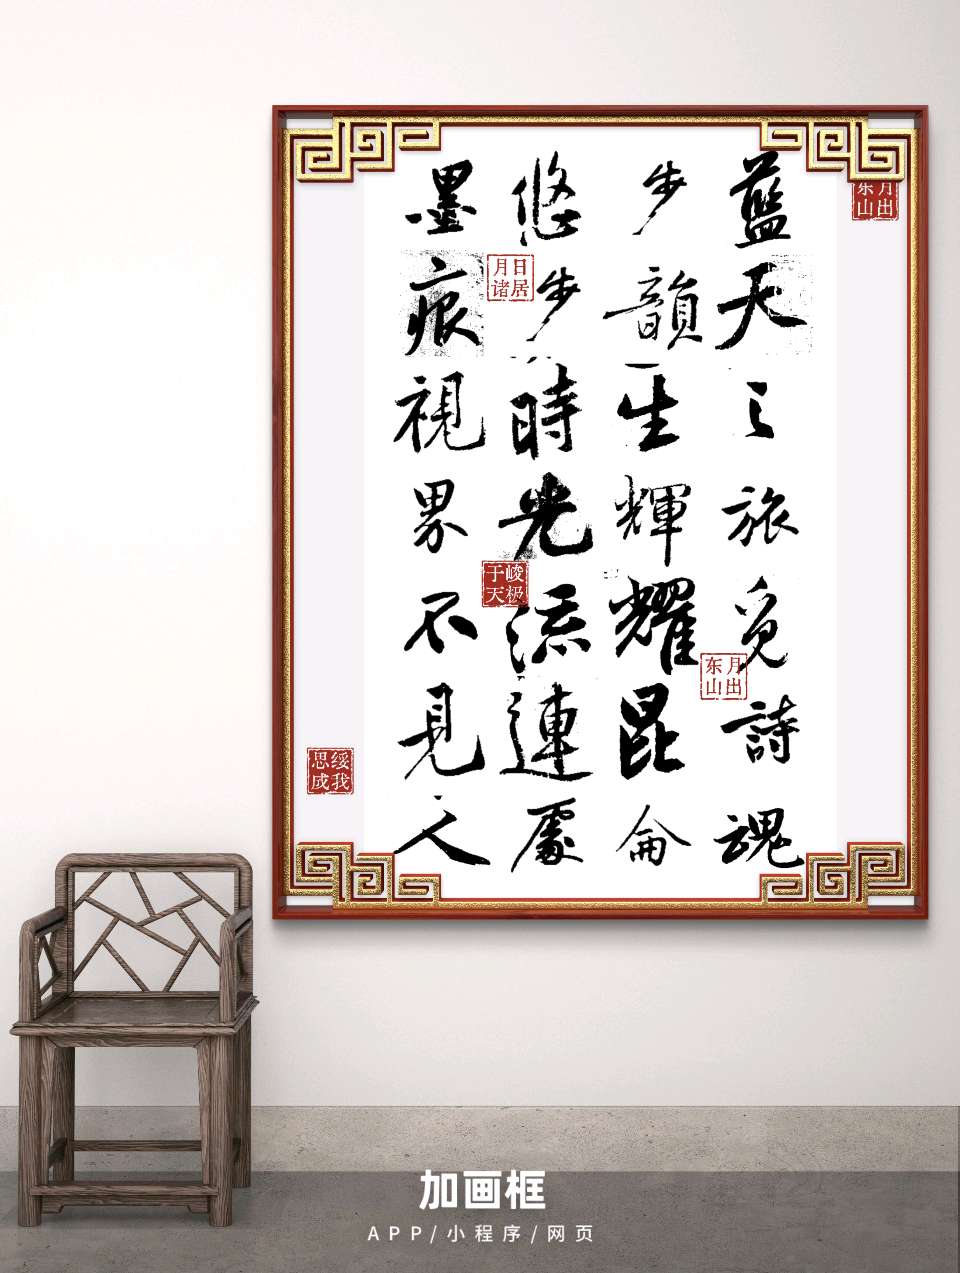 藍天之旅覓詩魂
步韻生輝耀昆侖
悠步時光流連處
墨痕視界不見人
月出
东山
日居
月诸
峻极
于天
月出
东山
绥我
思成
加画框
APP/小程序/网页